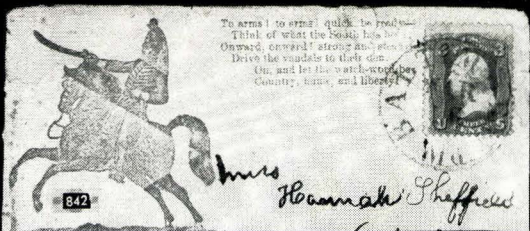 To arms! to arms! quick, be ready—
Think of what the South has
Onward, onward! strong and
Drive the vandals to their den.
On, and let the watch-word be
Country, home, and liberty!
3 3
BALT MD
Miss
Hannah Sheffield
842